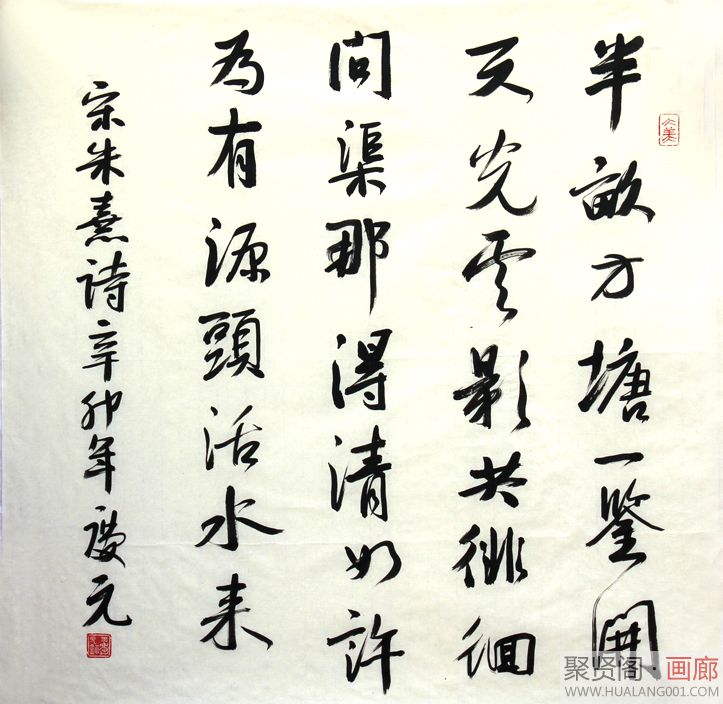 半畝方塘一鑒開
天光雲影共徘徊
問渠那得清如許
為有源頭活水来
宋朱熹詩辛卯年慶元
聚贤阁·画廊
WWW.HUALANG001.COM